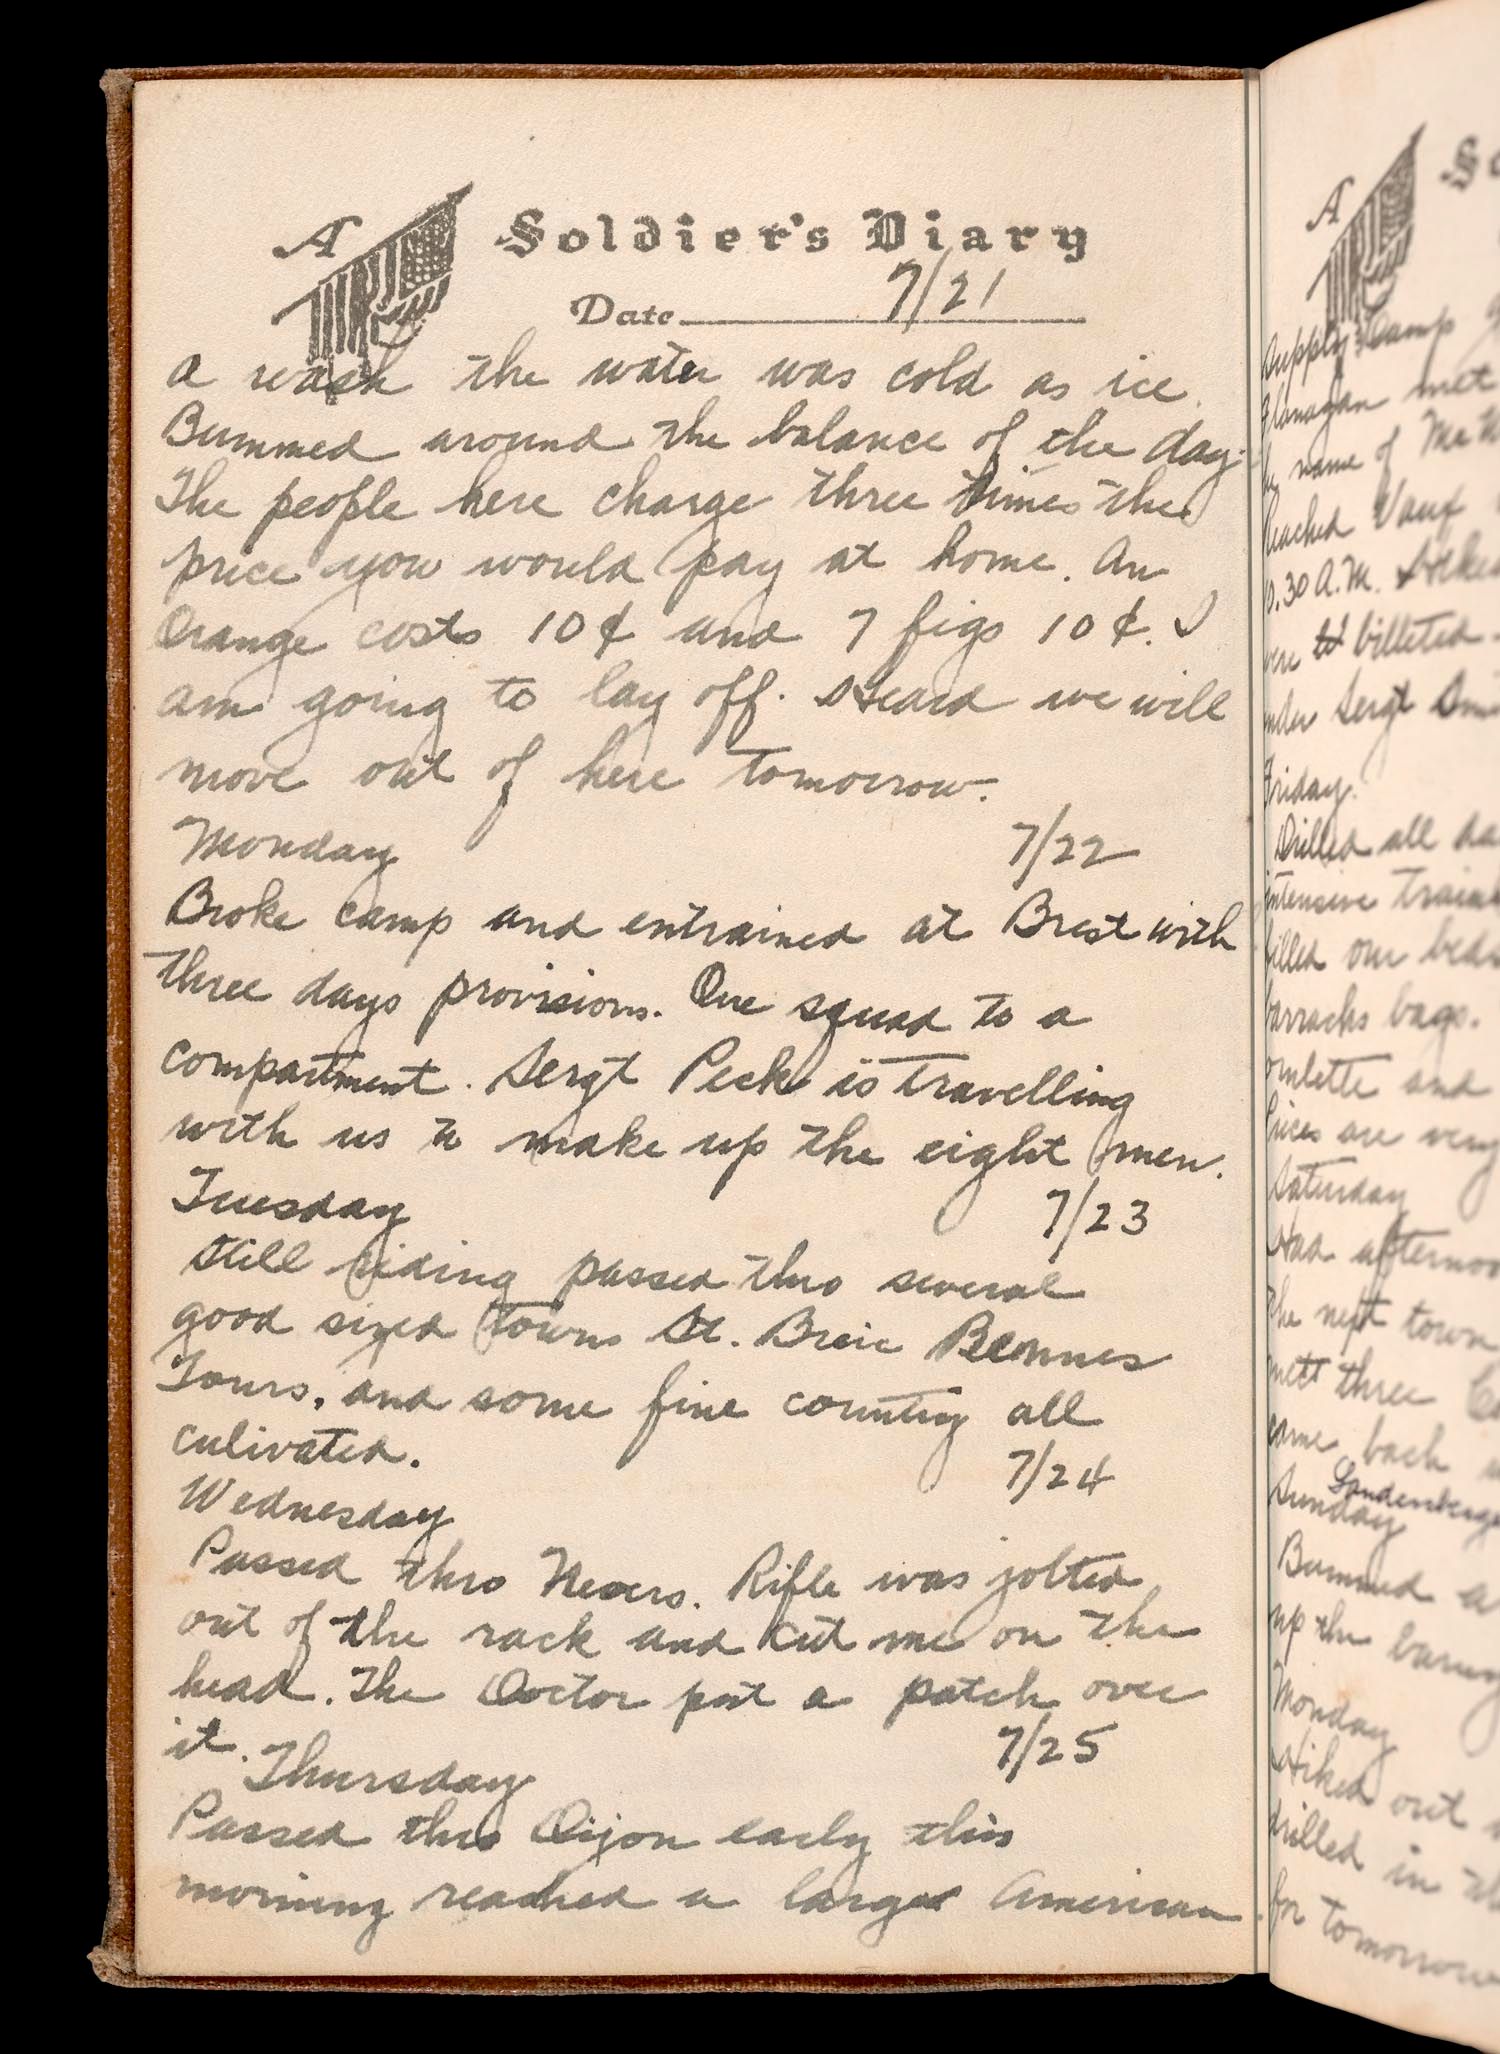 A Soldier's Diary
Date 7/21
a wash the water was cold as ice.
Bummed around the balance of the day.
The people here charge three times the
price you would pay at home. An
Orange costs 10¢ and 7 figs 10¢. I
am going to lay off. Heard we will
move out of here tomorrow.
Monday 7/22
Broke camp and entrained at Brest with
three days provisions. One squad to a
compartment. Sergt Peck is travelling
with us to make up the eight men.
Tuesday 7/23
Still riding passed thro several
good sized towns St. Breic Rennes
Tours, and some fine country all
culivated.
7/24
Wednesday
Passed thro Nevers. Rifle was jolted
out of the rack and cut me on the
head. The Doctor put a patch over
it. 7/25
Thursday
Passed thro Dijon early this
morning reached a large American
A
Supply Camp
Flanagan met
name of
reached Vauf
.30 A.M.
billeted
Sergt
Friday.
Drilled all
intensive
filled our
barracks bags.
omlette and
Prices are very
Saturday
Had
the next town
three
came back
Sunday
Bummed
up the
Monday
Hiked out
drilled in
for tomorrow